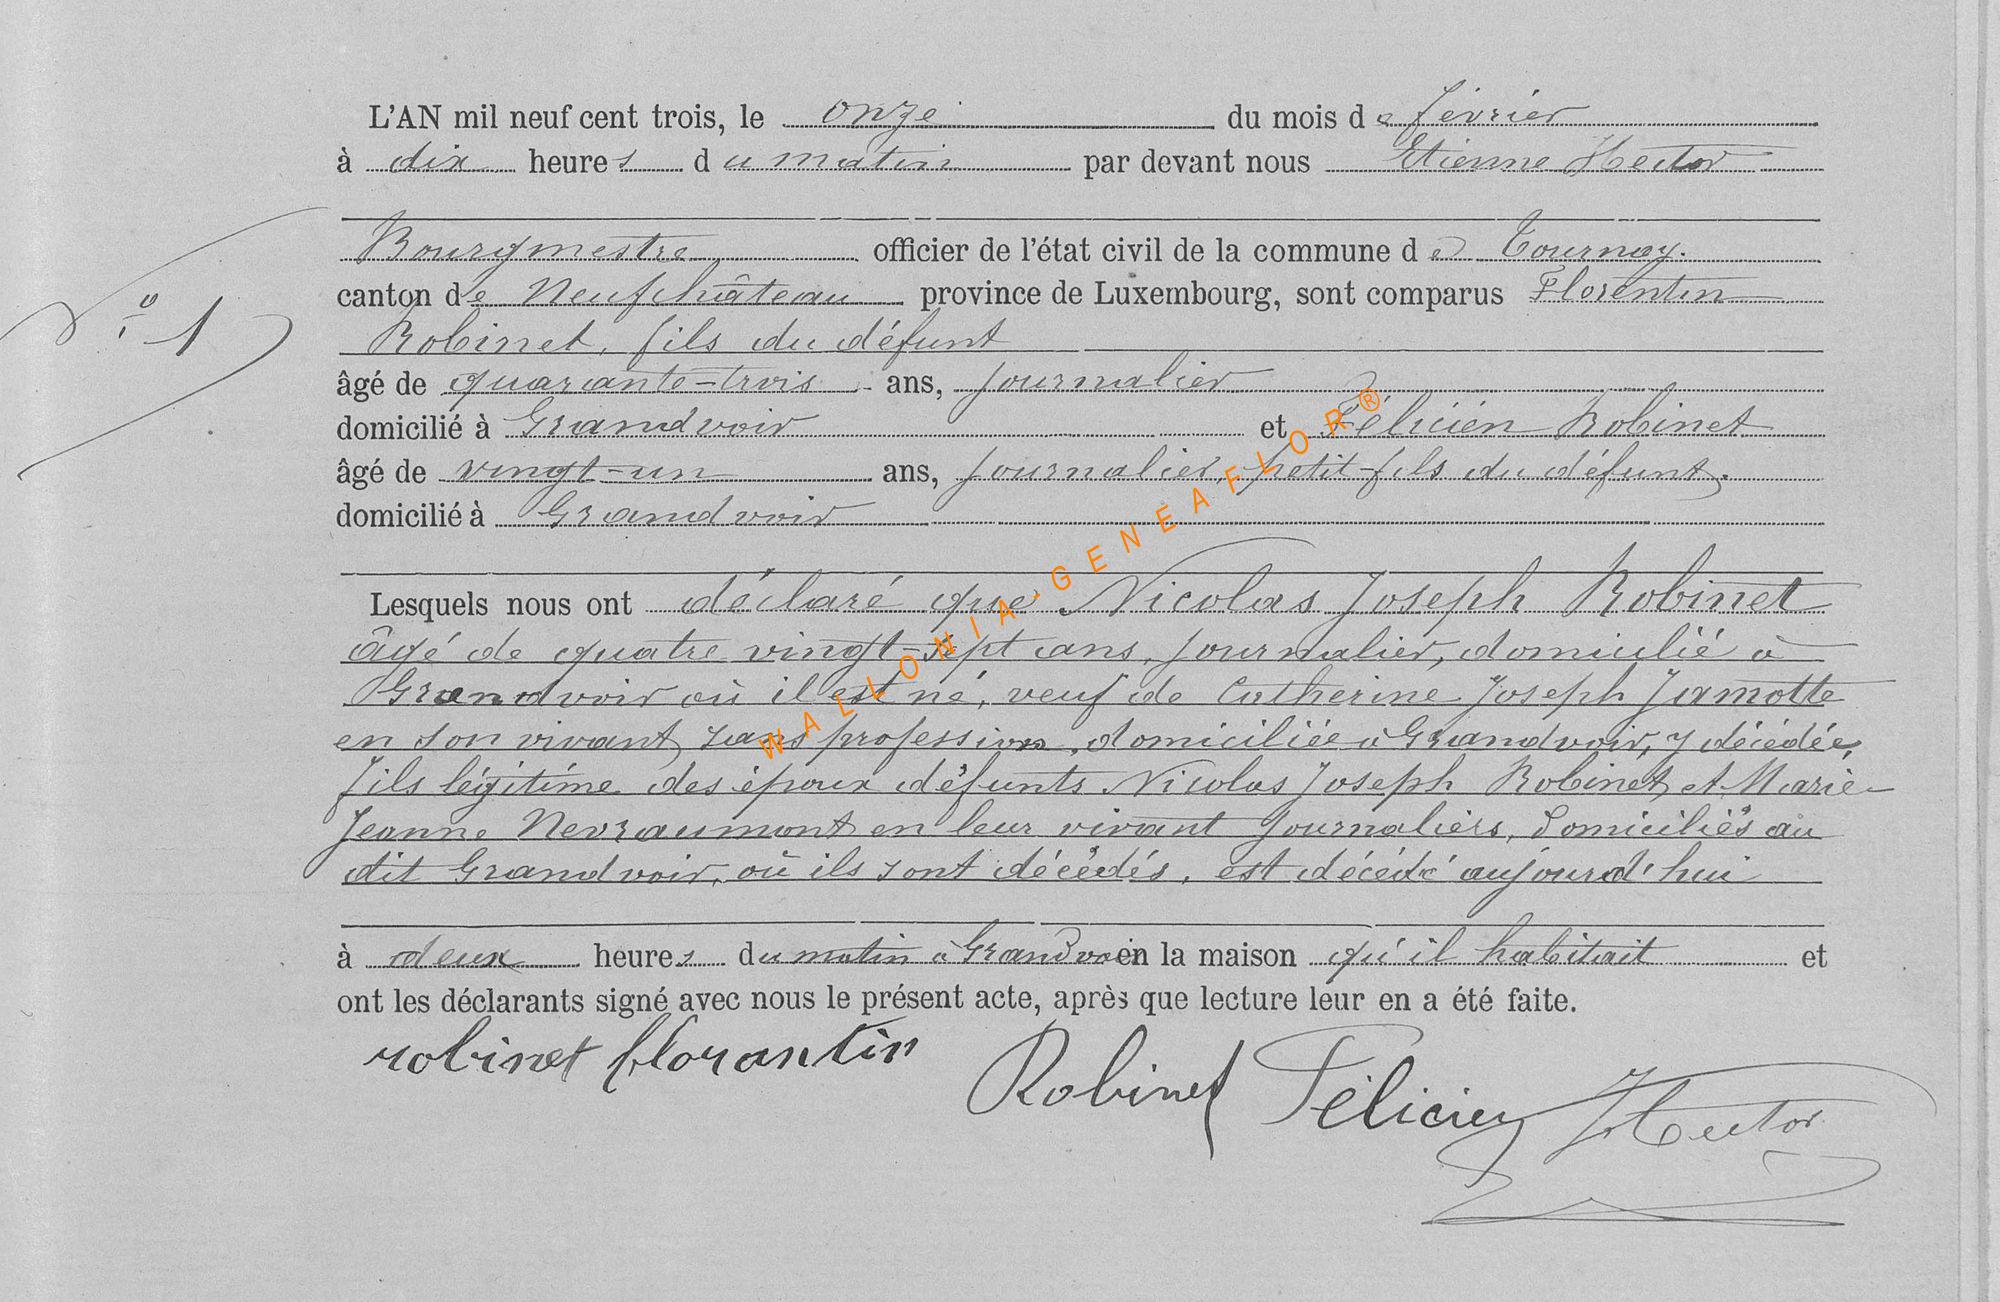 L'AN mil neuf cent trois, le onze du mois de février
à dix heures du matin par devant nous Etienne Hector
Bourgmestre officier de l'état civil de la commune de Tournay.
N° 1
canton de Neufchâteau province de Luxembourg, sont comparus Florentin
Robinet, fils du défunt
âgé de quarante-trois ans, journalier
domicilié à Grandvoir et Félicien Robinet
âgé de vingt-un ans, journalier, petit-fils du défunt,
domicilié à Grandvoir
Lesquels nous ont déclaré que Nicolas Joseph Robinet
âgé de quatre vingt-sept ans, journalier, domicilié à
Grandvoir où il est né, veuf de Catherine Joseph Jamotte
en son vivant, sans profession, domiciliée à Grandvoir, y décédée,
fils légitime des époux défunts Nicolas Joseph Robinet, et Marie-
Jeanne Nevraumont en leur vivant journaliers, domiciliés au
dit Grandvoir, où ils sont décédés, est décédé aujourd'hui
à deux heures du matin à Grandvoir en la maison qu'il habitait et
ont les déclarants signé avec nous le présent acte, après que lecture leur en a été faite.
robinet florantin Robinet Félicien Hector
WALLONIA-GENEAFLOR®